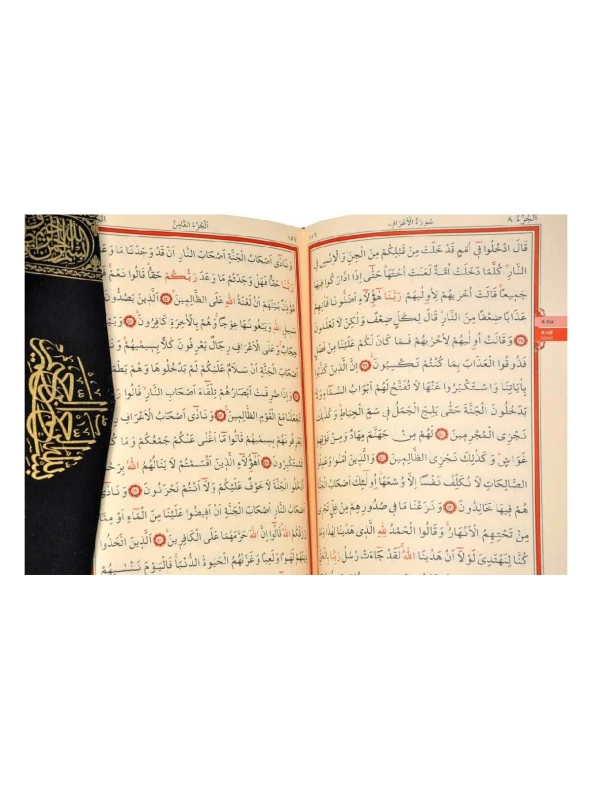 الجزء ٨
سورة الأعراف
١٥٤
قَالَ ادْخُلُوا فِٓي اُمَمٍ قَدْ خَلَتْ مِنْ قَبْلِكُمْ مِنَ الْجِنِّ وَالْاِنْسِ فِي
النَّارِ كُلَّمَا دَخَلَتْ اُمَّةٌ لَعَنَتْ اُخْتَهَا حَتّٰٓى اِذَا ادَّارَكُوا فِيهَا
جَمِيعاً قَالَتْ اُخْرٰيهُمْ لِاُو۫لٰيهُمْ رَبَّنَا هٰٓؤُ۬لَٓاءِ اَضَلُّونَا فَاٰتِهِمْ
عَذَاباً ضِعْفاً مِنَ النَّارِ قَالَ لِكُلٍّ ضِعْفٌ وَلٰكِنْ لَا تَعْلَمُونَ
وَقَالَتْ اُو۫لٰيهُمْ لِاُخْرٰيهُمْ فَمَا كَانَ لَكُمْ عَلَيْنَا مِنْ فَضْلٍ
فَذُوقُوا الْعَذَابَ بِمَا كُنْتُمْ تَكْسِبُونَ اِنَّ الَّذِينَ كَذَّبُوا
بِاٰيَاتِنَا وَاسْتَكْبَرُوا عَنْهَا لَا تُفَتَّحُ لَهُمْ اَبْوَابُ السَّمَٓاءِ وَلَا
يَدْخُلُونَ الْجَنَّةَ حَتّٰى يَلِجَ الْجَمَلُ فِي سَمِّ الْخِيَاطِ وَكَذٰلِكَ
نَجْزِي الْمُجْرِمِينَ لَهُمْ مِنْ جَهَنَّمَ مِهَادٌ وَمِنْ فَوْقِهِمْ
غَوَاشٍ وَكَذٰلِكَ نَجْزِي الظَّالِمِينَ وَالَّذِينَ اٰمَنُوا وَعَمِلُوا
الصَّالِحَاتِ لَا نُكَلِّفُ نَفْساً اِلَّا وُسْعَهَا اُو۬لٰٓئِكَ اَصْحَابُ الْجَنَّةِ
هُمْ فِيهَا خَالِدُونَ وَنَزَعْنَا مَا فِي صُدُورِهِمْ مِنْ غِلٍّ تَجْرِي
مِنْ تَحْتِهِمُ الْاَنْهَارُ وَقَالُوا الْحَمْدُ لِلّٰهِ الَّذِي هَدٰينَا لِهٰذَا وَمَا
كُنَّا لِنَهْتَدِيَ لَوْلَٓا اَنْ هَدٰينَا اللّٰهُ لَقَدْ جَٓاءَتْ رُسُلُ رَبِّنَا بِالْحَقِّ
الجزء الثامن
١٥٥
وَنَادٰٓى اَصْحَابُ الْجَنَّةِ اَصْحَابَ النَّارِ اَنْ قَدْ وَجَدْنَا مَا وَعَدَنَا
رَبُّنَا حَقاًّ فَهَلْ وَجَدْتُمْ مَا وَعَدَ رَبُّكُمْ حَقاًّ قَالُوا نَعَمْ
مُؤَذِّنٌ بَيْنَهُمْ اَنْ لَعْنَةُ اللّٰهِ عَلَى الظَّالِمِينَ اَلَّذِينَ يَصُدُّونَ
سَبِيلِ اللّٰهِ وَيَبْغُونَهَا عِوَجاً وَهُمْ بِالْاٰخِرَةِ كَافِرُونَ
حِجَابٌ وَعَلَى الْاَعْرَافِ رِجَالٌ يَعْرِفُونَ كُلاًّ بِسِيمٰيهُمْ
اَصْحَابَ الْجَنَّةِ اَنْ سَلَامٌ عَلَيْكُمْ لَمْ يَدْخُلُوهَا وَهُمْ يَطْمَعُونَ
وَاِذَا صُرِفَتْ اَبْصَارُهُمْ تِلْقَٓاءَ اَصْحَابِ النَّارِ قَالُوا
تَجْعَلْنَا مَعَ الْقَوْمِ الظَّالِمِينَ وَنَادٰٓى اَصْحَابُ الْاَعْرَافِ
يَعْرِفُونَهُمْ بِسِيمٰيهُمْ قَالُوا مَٓا اَغْنٰى عَنْكُمْ جَمْعُكُمْ وَمَا
تَسْتَكْبِرُونَ اَهٰٓؤُ۬لَٓاءِ الَّذِينَ اَقْسَمْتُمْ لَا يَنَالُهُمُ اللّٰهُ
اُدْخُلُوا الْجَنَّةَ لَا خَوْفٌ عَلَيْكُمْ وَلَٓا اَنْتُمْ تَحْزَنُونَ
اَصْحَابُ النَّارِ اَصْحَابَ الْجَنَّةِ اَنْ اَفِيضُوا عَلَيْنَا مِنَ الْمَٓاءِ اَوْ مِمَّا
اللّٰهُ قَالُٓوا اِنَّ اللّٰهَ حَرَّمَهُمَا عَلَى الْكَافِرِينَ اَلَّذِينَ اتَّخَذُوا
دِينَهُمْ لَهْواً وَلَعِباً وَغَرَّتْهُمُ الْحَيٰوةُ الدُّنْيَا فَالْيَوْمَ نَنْسٰيهُمْ